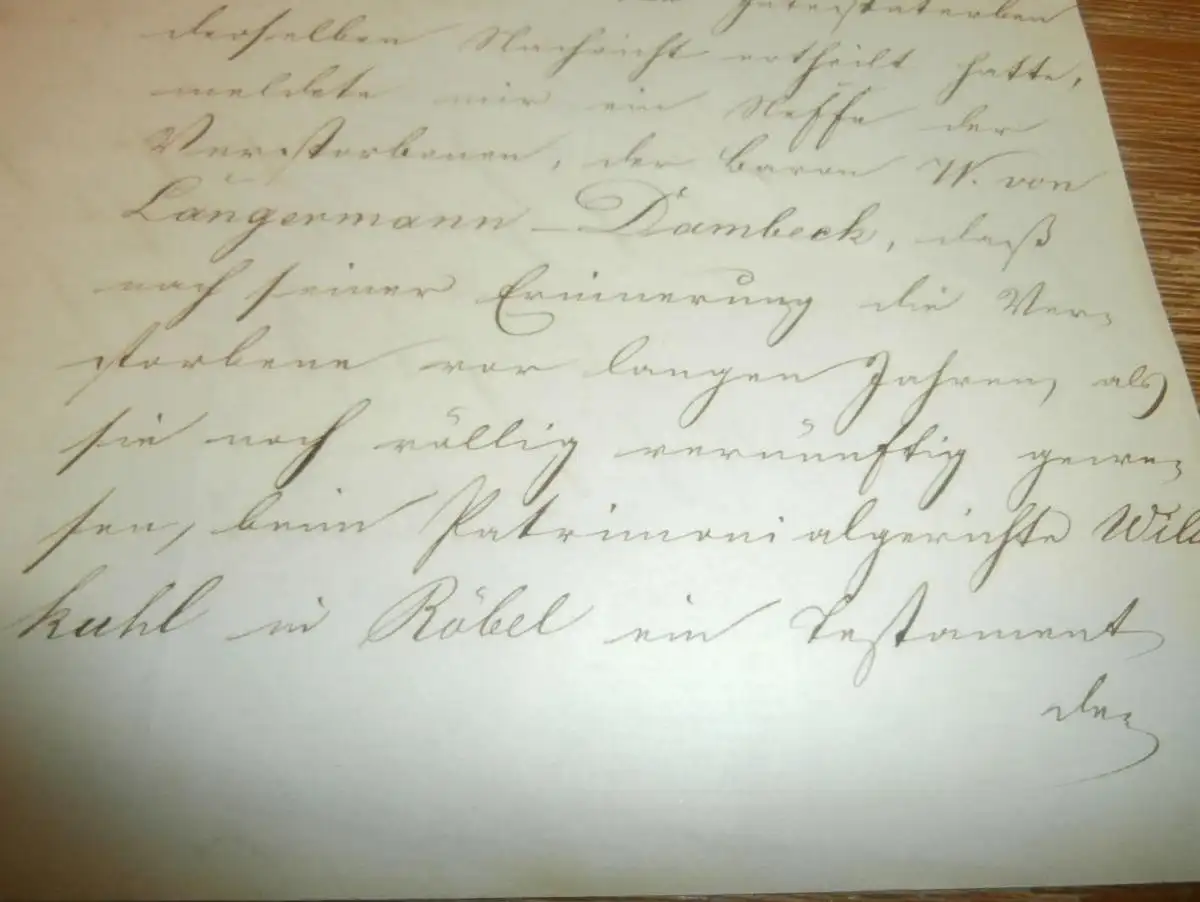 Intestaterben
derselben Nachricht ertheilt hatte,
meldete mir ein Neffe der
Verstorbenen, der Baron W. von
Langermann-Dambeck, daß
nach seiner Erinnerung die Ver-
storbene vor langen Jahren, als
sie noch völlig vernünftig gewe-
sen, beim Patrimonialgerichte Wild
kuhl in Röbel ein Testament
de-